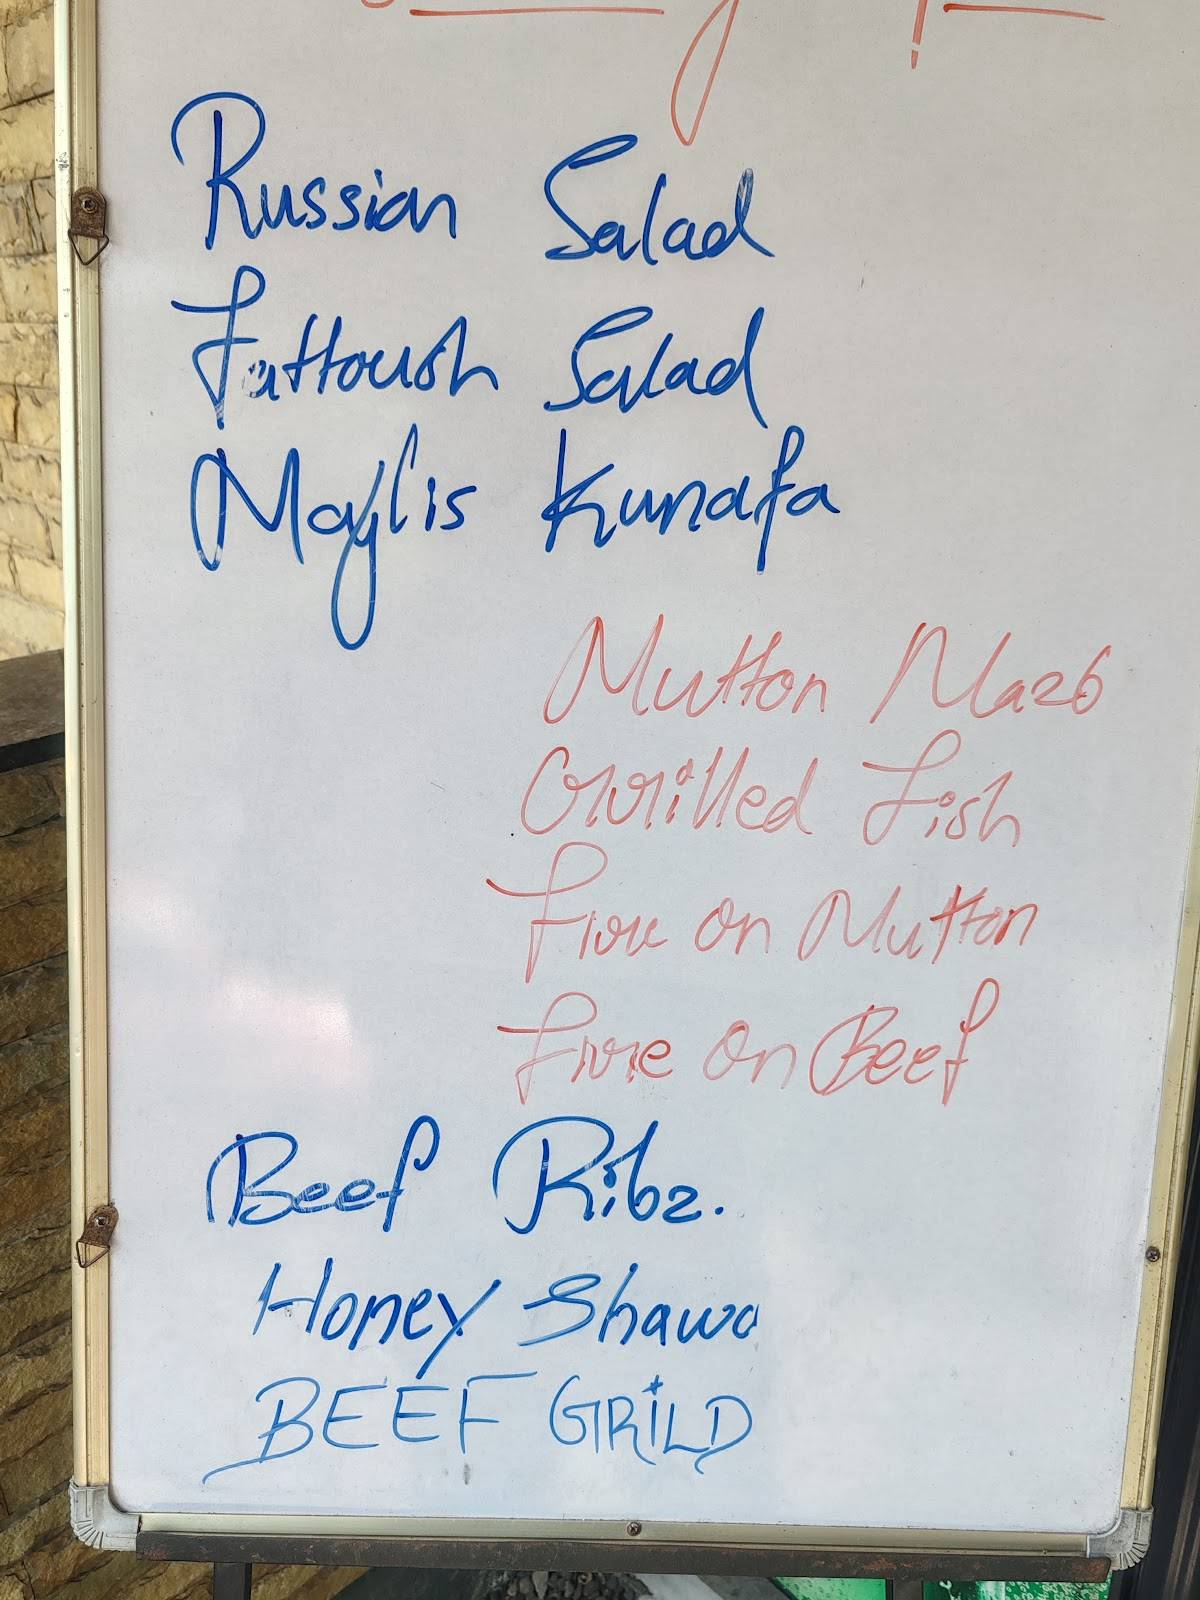 Russian Salad
Fattoush Salad
Majlis Kunafa
Mutton Mazb
Grilled Fish
Fire on Mutton
Fire on Beef
Beef Ribz.
Honey Shawa
BEEF GRILD